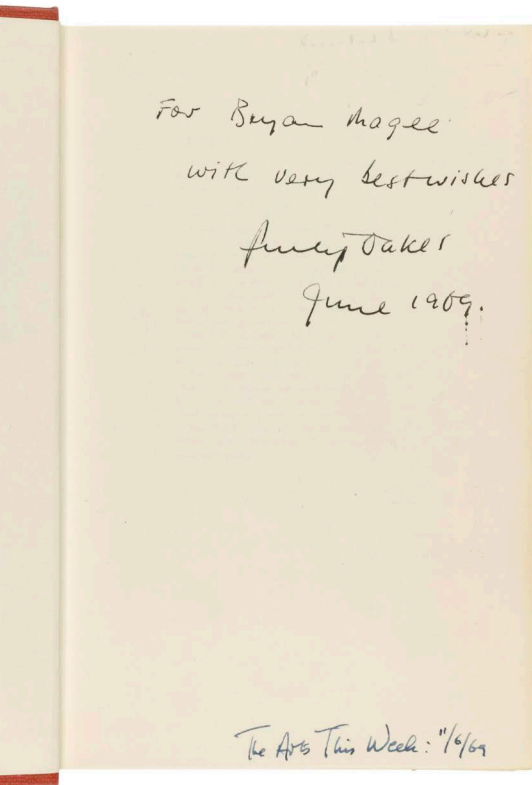 For Bryan Magee
with very best wishes
Philip Oakes
June 1969.
The Arts This Week: 11/6/69